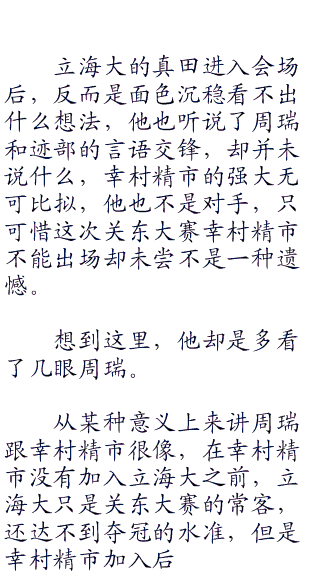 立海大的真田进入会场
后，反而是面色沉稳看不出
什么想法，他也听说了周瑞
和迹部的言语交锋，却并未
说什么，幸村精市的强大无
可比拟，他也不是对手，只
可惜这次关东大赛幸村精市
不能出场却未尝不是一种遗
憾。
想到这里，他却是多看
了几眼周瑞。
从某种意义上来讲周瑞
跟幸村精市很像，在幸村精
市没有加入立海大之前，立
海大只是关东大赛的常客，
还达不到夺冠的水准，但是
幸村精市加入后